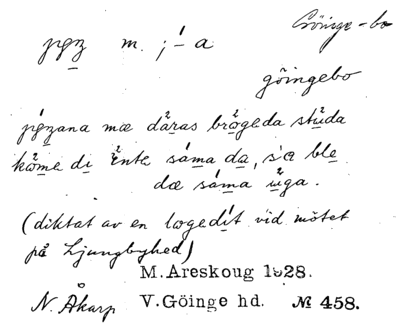 Göinge-bo
jɐz m. ; ́- a
göingebo
jɐzana mæ dǎras brǒgeda stůda
kǒme di ěnte sáma da, sæ ble
dæ sáma ůga.
(diktat av en lægedit vid mötet
på Ljungbyhed)
M.Areskoug 1928.
N. Åkarp V.Göinge hd. № 458.